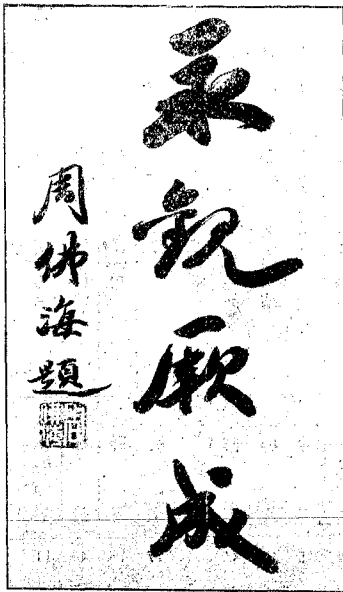 永觀厥成
周佛海題